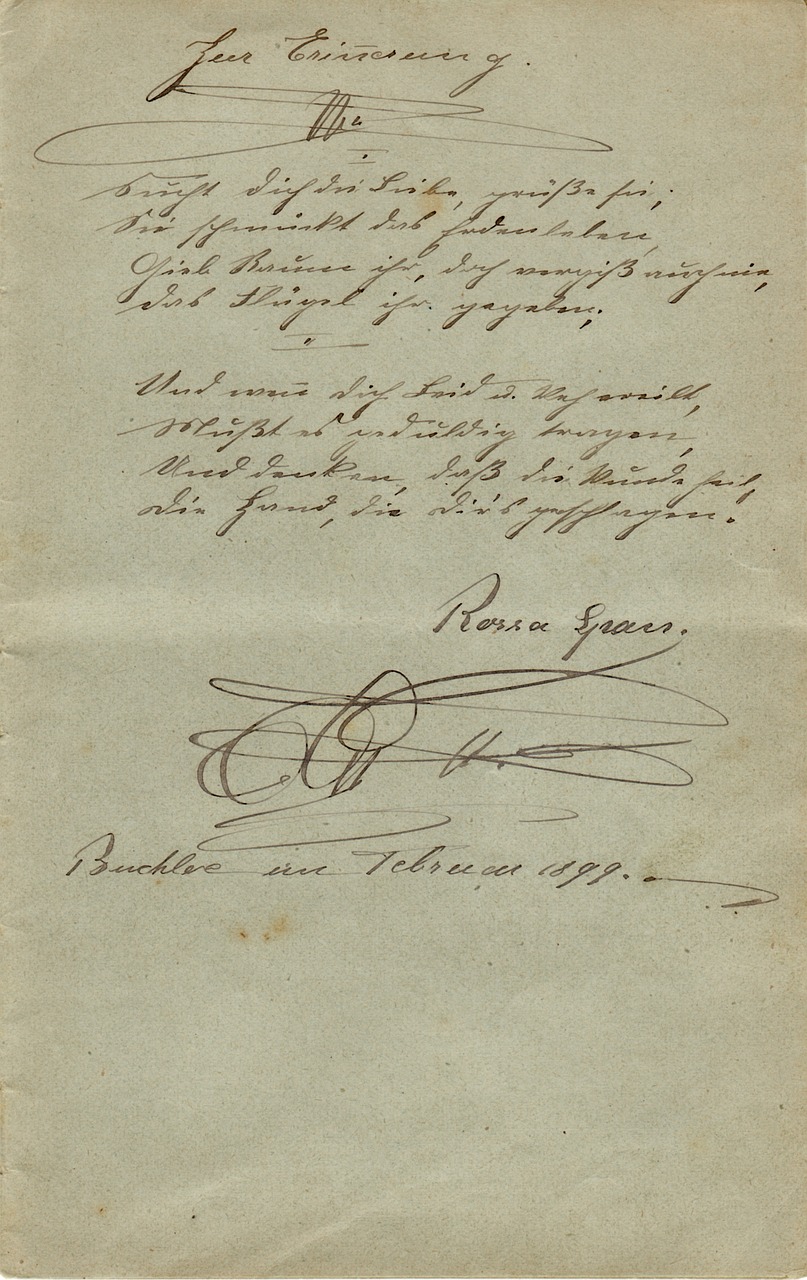 Zur Erin̅erung.
Sucht dich die Liebe, grüße sie;
Sie schmückt das Erdenleben,
Gieb Raum ihr, doch vergiß auch nie,
das Flügel ihr gegeben;
Und wen̅ dich Leid u. Weh ereilt,
Mußt es geduldig tragen,
Und denken, daß die Wunde heilt,
Die Hand, die dir's geschlagen.
Rossa
im Februar 1899.